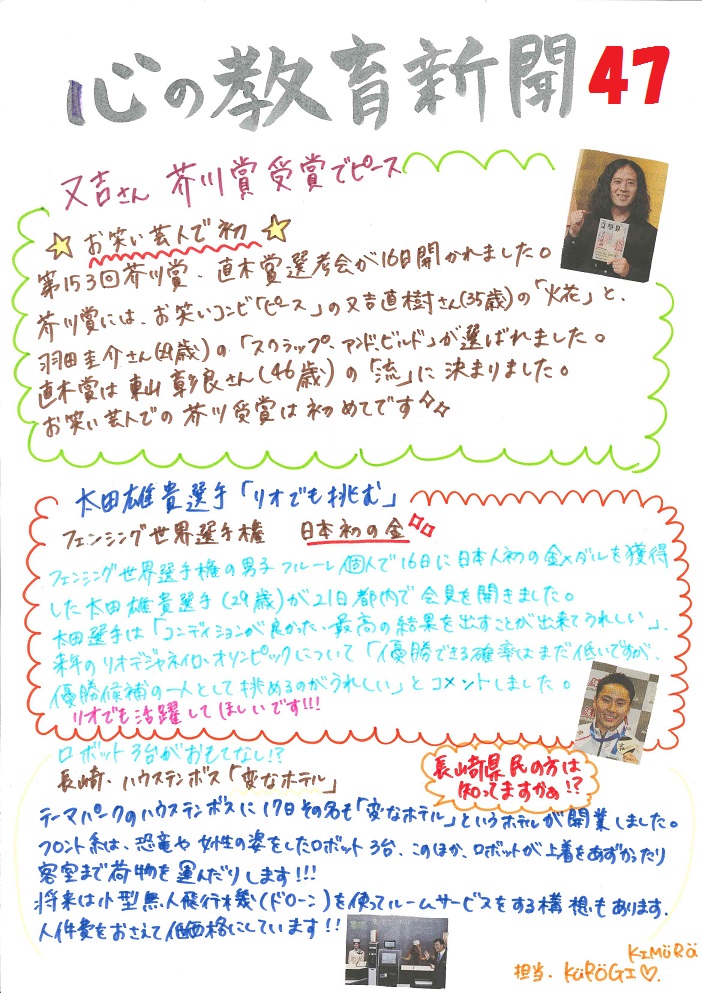 心の教育新聞 47
又吉さん 芥川賞受賞でピース
お笑い芸人で初
第153回芥川賞、直木賞選考会が16日開かれました。
芥川賞には、お笑いコンビ「ピース」の又吉直樹さん(35歳)の「火花」と、
羽田圭介さん(29歳)の「スクラップ・アンド・ビルド」が選ばれました。
直木賞は東山彰良さん(46歳)の「流」に決まりました。
お笑い芸人での芥川受賞は初めてです
太田雄貴選手「リオでも挑む」
フェンシング世界選手権 日本初の金
フェンシング世界選手権の男子フルーレ個人で16日に日本人初の金メダルを獲得
した太田雄貴選手(29歳)が21日都内で会見を開きました。
太田選手は「コンディションが良かった。最高の結果を出すことが出来てうれしい」、
来年のリオデジャネイロ・オリンピックについて「優勝できる確率はまだ低いですが、
優勝候補の一人として挑めるのがうれしい」とコメントしました。
リオでも活躍してほしいです!!!
ロボット3台がおもてなし!?
長崎・ハウステンボス「変なホテル」
長崎県民の方は
知ってますかぁ!?
テーマパークのハウステンボスに17日その名も「変なホテル」というホテルが開業しました。
フロント系は、恐竜や女性の姿をしたロボット3台、このほか、ロボットが上着をあずかったり
客室まで荷物を運んだりします!!!
将来は小型無人飛行機(ドローン)を使ってルームサービスをする構想もあります。
人件費をおさえて低価格にしています!!
KIMURA
担当。KUROGI♡。